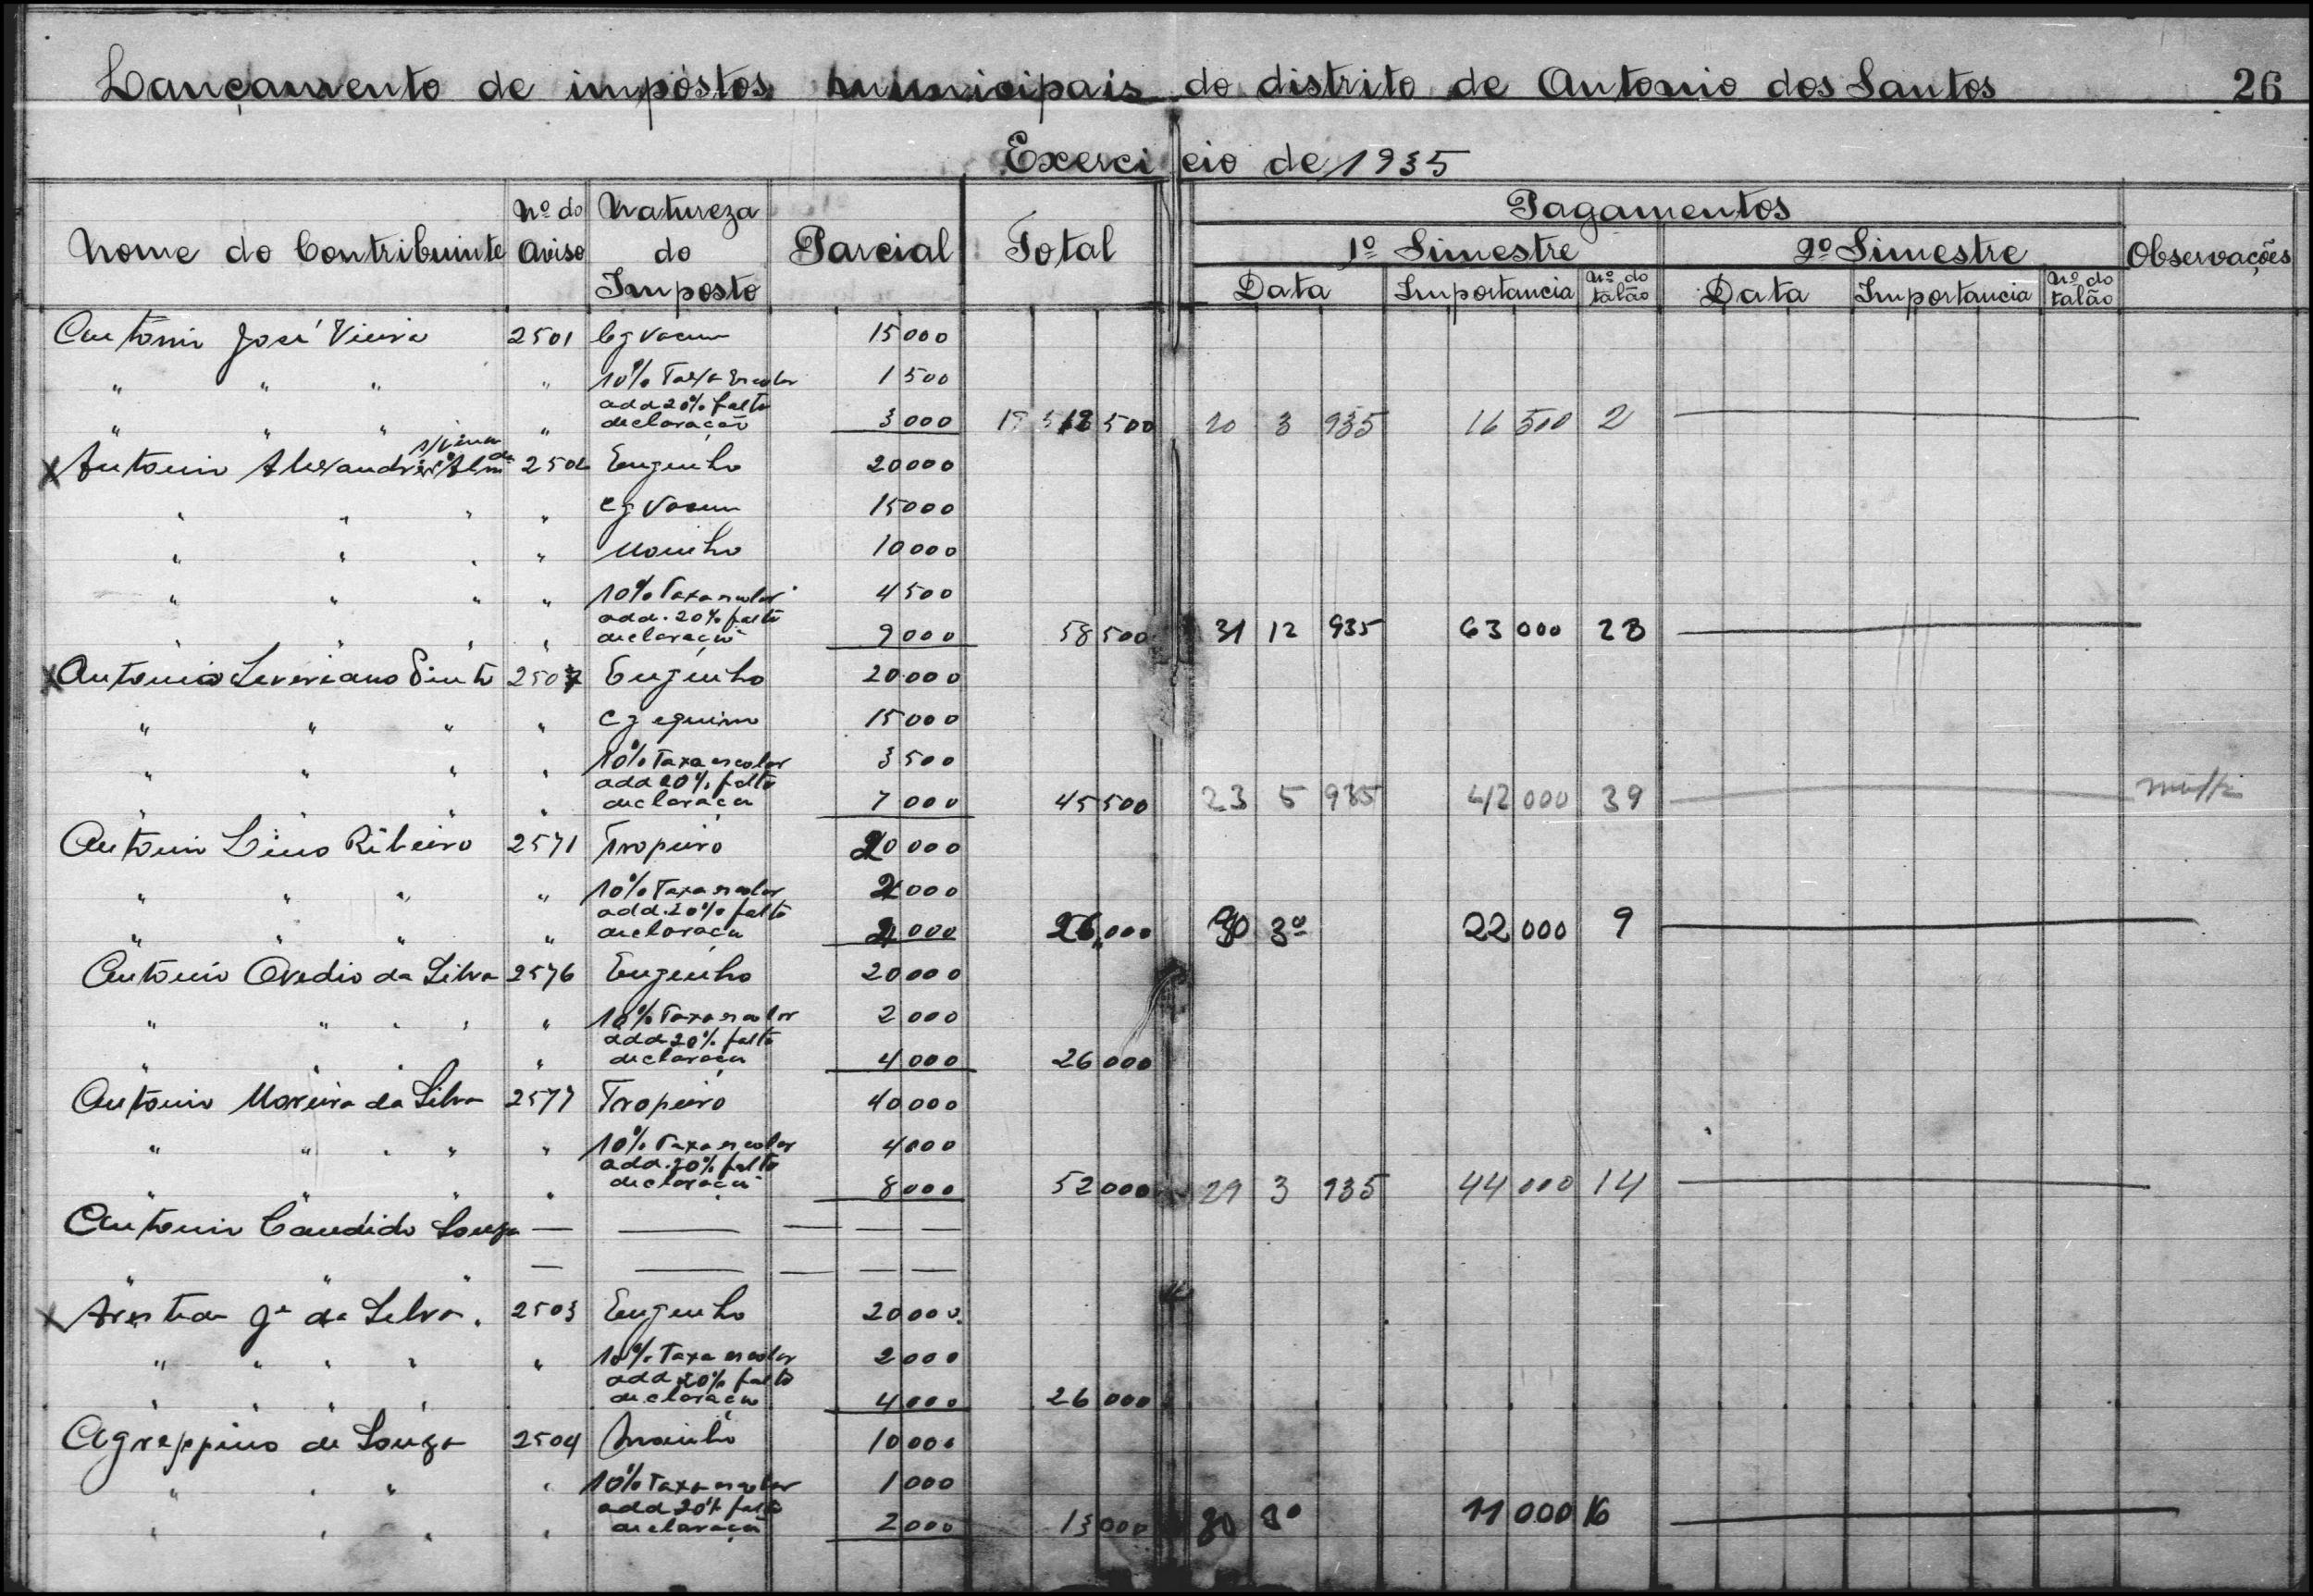 Lançamento de impóstos municipais do distrito de Antonio dos Santos 26
Exercicio de 1935
Nome do Contribuinte Nº do Aviso Natureza do Imposto Parcial Total Pagamentos Observações
1º Simestre 2º Simestre
Data Importancia Nº do talão Data Importancia Nº do talão
Antonio José Vieira 2501 Cg Vacum 15 000
" " " " 10% Taxa Escolar 1 500
add 20% falta
" " " " declaração 3 000 500 20 3 935 16 500 2
X Antonio Alexandrino 2502 Engenho 20 000
" " " " Cg Vacum 15 000
" " " " Moinho 10 000
" " " " 10% Taxa escolar 4 500
add. 20% falta
" " " " declaração 9 000 58 500 31 12 935 63 000 23
X Antonio Severiano Pinto 2507 Engenho 20 000
" " " " Cg equino 15 000
" " " " 10% Taxa escolar 3 500
add 20% falta
" " " " declaração 7 000 45 500 23 5 935 42 000 39
Antonio Lino Ribeiro 2571 Tropeiro 20 000
" " " " 10% Taxa escolar 2 000
add. 20% falta
" " " " declaração 000 26,000 30 3º 22 000 9
Antonio Ovedio da Silva 2576 Engenho 20 000
" " " " " 10% Taxa escolar 2 000
add 20% falta
" " " " declaração 4 000 26 000
Antonio Moreira da Silva 2577 Tropeiro 40 000
" " " " " 10% Taxa escolar 4 000
add. 20% falta
" " " " declaração 8 000 52 000 29 3 935 44 000 14
Antonio Candido Souza — — — — —
" " " — — — — —
X da Silva. 2503 Engenho 20 000
" " " " " 10% Taxa escolar 2 000
add 20% falta
" " " " declaração 4 000 26 000
Agreppino de Souza 2504 Moinho 10 000
" " " " 10% Taxa escolar 1 000
add 20% falta
" " " " declaração 2 000 13 000 30 3º 11 000 16